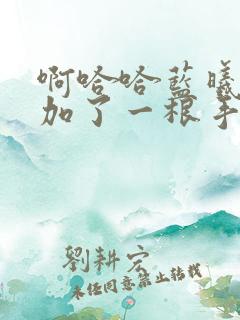 啊哈哈蓝曦
加了一根手
劉耕宏
未经同意禁止转载